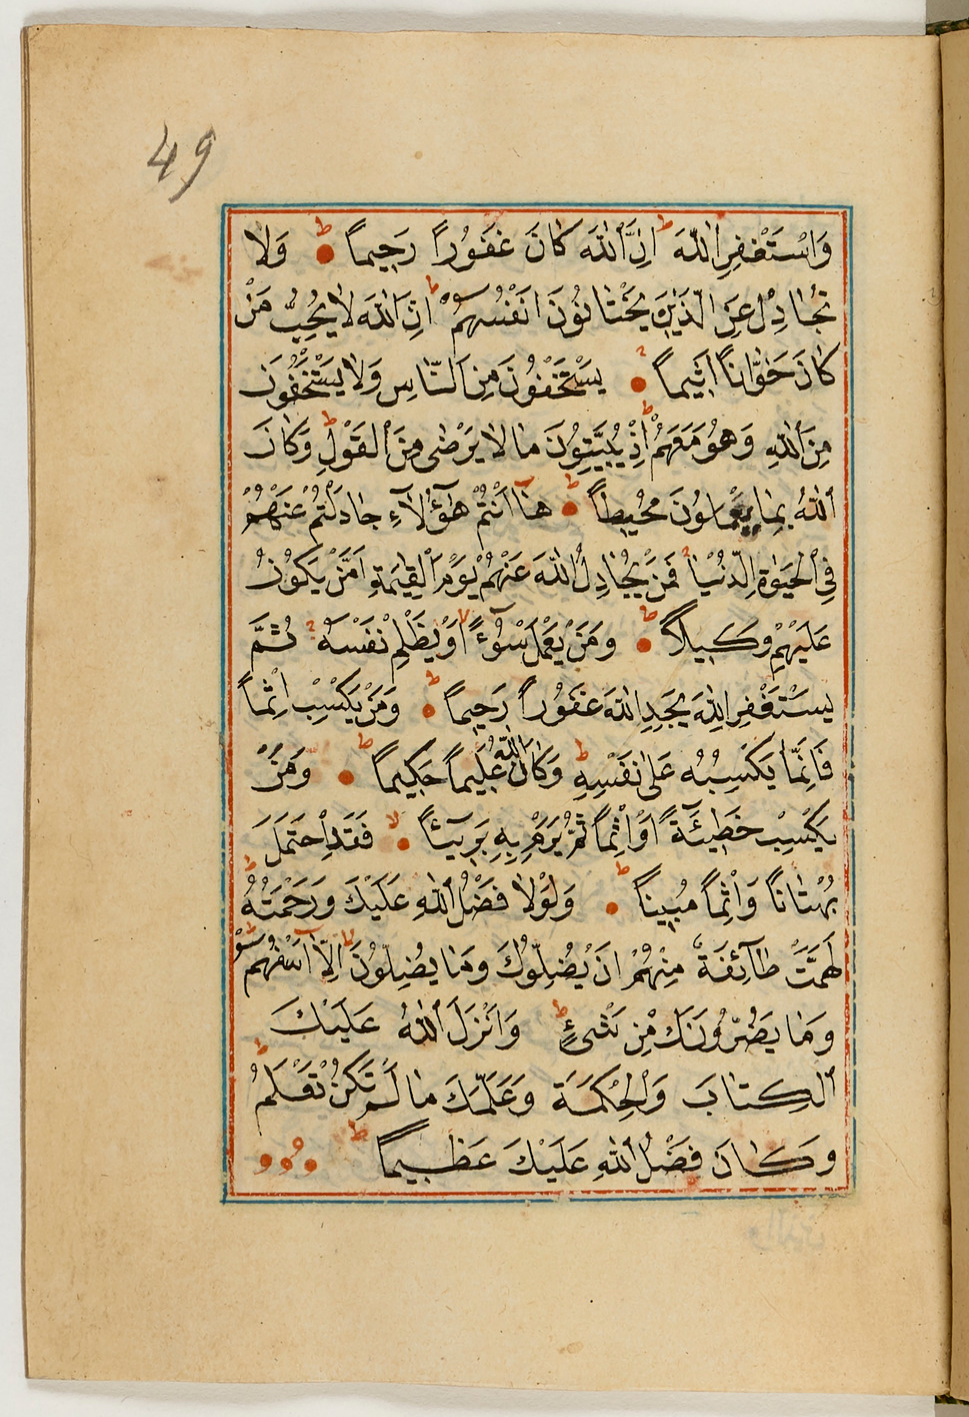 49
وَاسْتَغْفِرِ اللّٰهَ ط اِنَّ اللّٰهَ كَانَ غَفُورًا رَحِيمًا ط وَلَا
تُجَادِلْ عَنِ الَّذِينَ يَخْتَانُونَ اَنْفُسَهُمْ ط اِنَّ اللّٰهَ لَا يُحِبُّ مَنْ
كَانَ خَوَّانًا اَثِيمًا يَسْتَخْفُونَ مِنَ النَّاسِ وَلَا يَسْتَخْفُونَ
مِنَ اللّٰهِ وَهُوَ مَعَهُمْ اِذْ يُبَيِّتُونَ مَا لَا يَرْضٰى مِنَ الْقَوْلِ ط وَكَانَ
اللّٰهُ بِمَا يَعْمَلُونَ مُحِيطًا ط هَآ اَنْتُمْ هٰٓؤُلَآءِ جَادَلْتُمْ عَنْهُمْ
فِي الْحَيٰوةِ الدُّنْيَا فَمَنْ يُجَادِلُ اللّٰهَ عَنْهُمْ يَوْمَ الْقِيٰمَةِ اَمَّنْ يَكُونُ
عَلَيْهِمْ وَكِيلًا ط وَمَنْ يَعْمَلْ سُوٓءًا اَوْ يَظْلِمْ نَفْسَهُ ثُمَّ
يَسْتَغْفِرِ اللّٰهَ يَجِدِ اللّٰهَ غَفُورًا رَحِيمًا ط وَمَنْ يَكْسِبْ اِثْمًا
فَاِنَّمَا يَكْسِبُهُ عَلٰى نَفْسِهِ ط وَكَانَ اللّٰهُ عَلِيمًا حَكِيمًا ط وَمَنْ
يَكْسِبْ خَطِيٓئَةً اَوْ اِثْمًا ثُمَّ يَرْمِ بِهِ بَرِيٓئًا لا فَقَدِ احْتَمَلَ
بُهْتَانًا وَاِثْمًا مُبِينًا ط وَلَوْلَا فَضْلُ اللّٰهِ عَلَيْكَ وَرَحْمَتُهُ ط
لَهَمَّتْ طَآئِفَةٌ مِنْهُمْ اَنْ يُضِلُّوكَ وَمَا يُضِلُّونَ اِلَّآ اَنْفُسَهُمْ ط
وَمَا يَضُرُّونَكَ مِنْ شَيْءٍ ط وَاَنْزَلَ اللّٰهُ عَلَيْكَ
الْكِتَابَ وَالْحِكْمَةَ وَعَلَّمَكَ مَا لَمْ تَكُنْ تَعْلَمُ ط
وَكَانَ فَضْلُ اللّٰهِ عَلَيْكَ عَظِيمًا ط